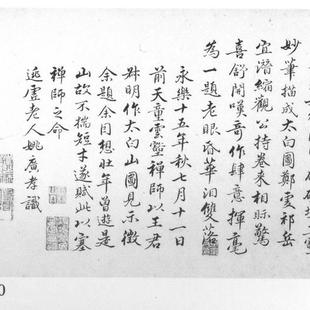 妙筆描成太白圖鄭虔祁岳
宜潛縮觀公持卷來相眎驚
喜舒闊嘆奇作肆意揮毫
為一題老眼昏華泪雙落
永樂十五年秋七月十一日
前天童雲壑禪師以王君
叔明作太白山圖見示徵
余題余因想壯年曾遊是
山故不揣短才遂賦此以塞
禪師之命
逃虛老人姚廣孝識
0